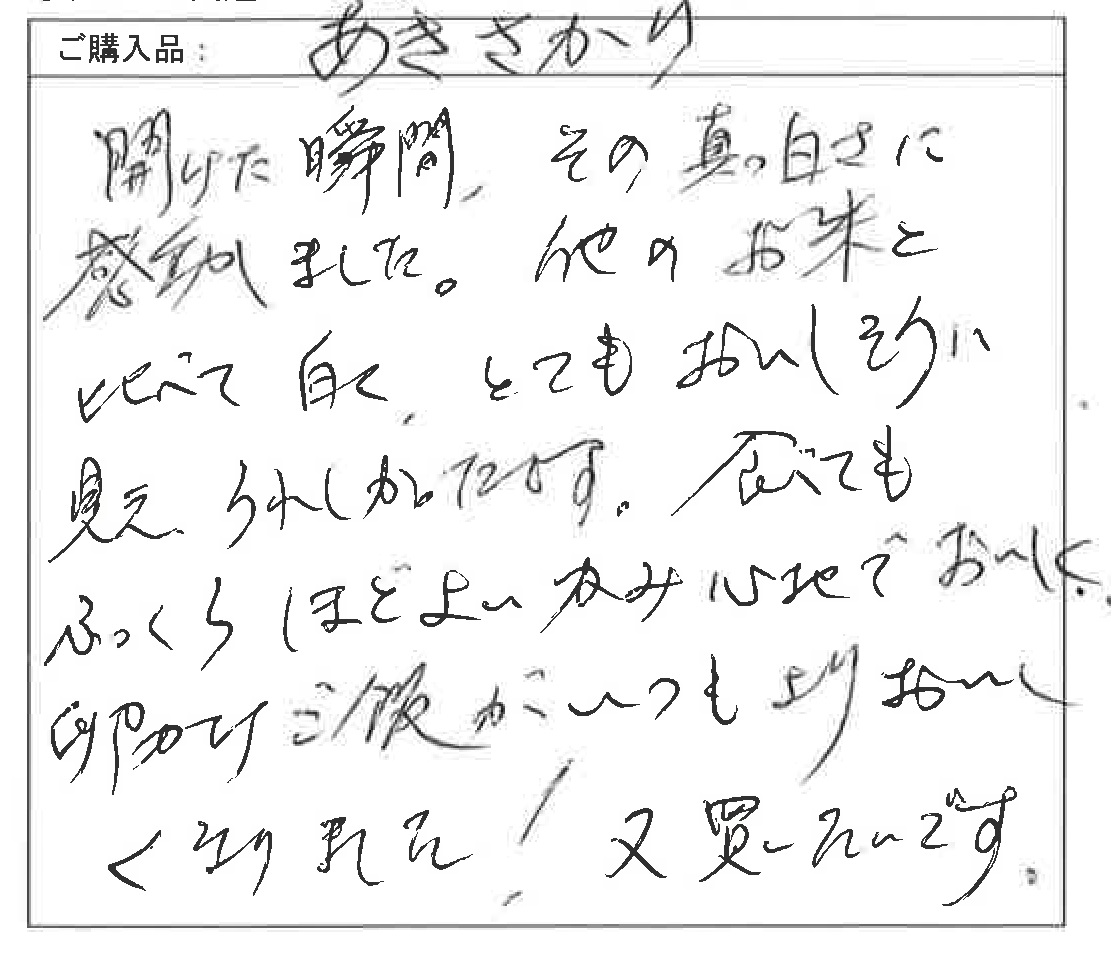 ご購入品： あきさかり
開けた瞬間、その真っ白さに
感動しました。他のお米と
比べて白く、とてもおいしそうに
見え、うれしかったです。食べても
ふっくらほどよいかみ心地でおいしく、
卵かけご飯がいつもよりおいし
くなりました！又買いたいです。